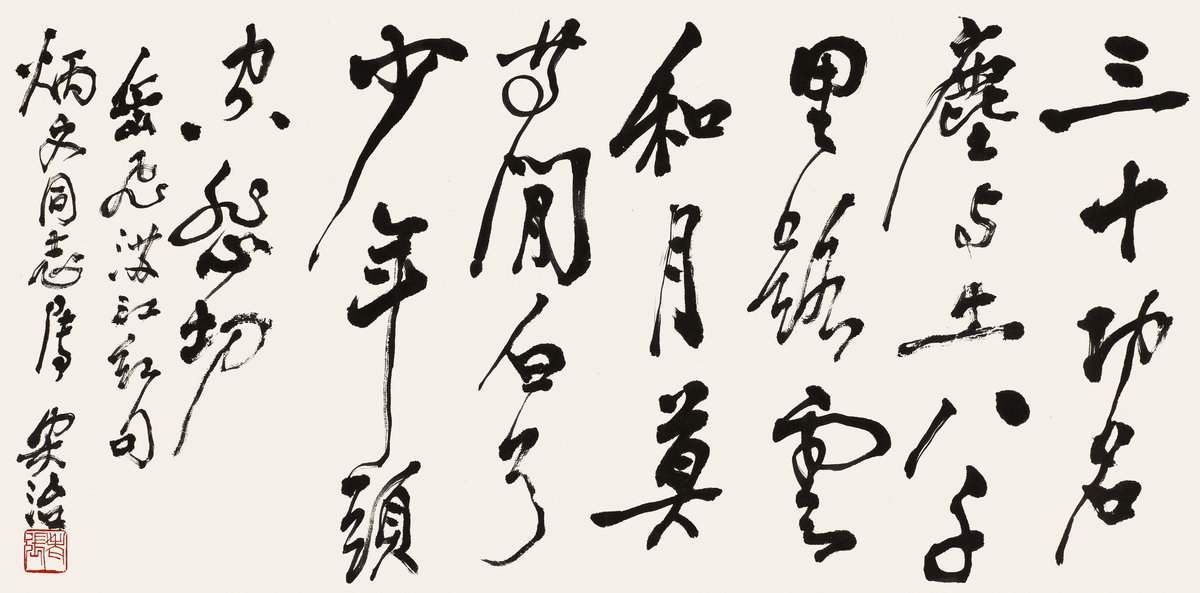 三十功名
塵与土八千
里路雲
和月莫
等閒白了
少年頭
空悲切
岳飛滿江紅句
炳文同志屬 安治